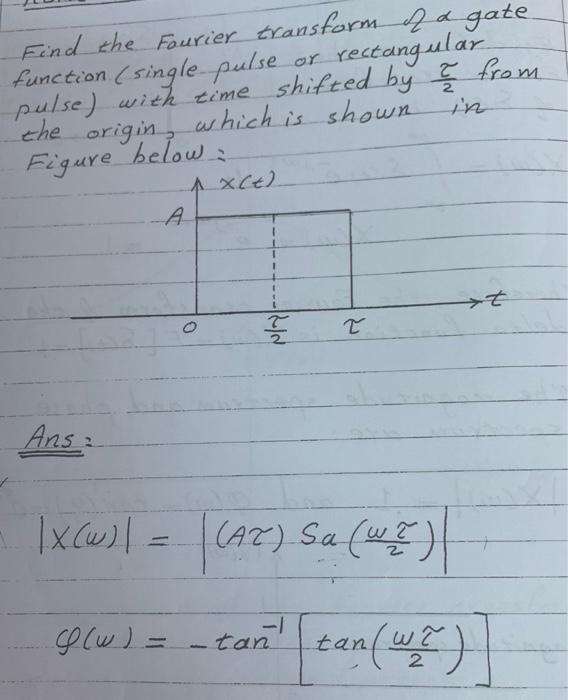 Find the Fourier transform of a gate
function (single pulse or rectangular
pulse) with time shifted by τ/2 from
the origin, which is shown in
Figure below:
x(t)
A
t
0 τ/2 τ
Ans:
|X(ω)| = |(Aτ) Sa(ωτ/2)|
φ(ω) = -tan⁻¹ [tan(ωτ/2)]